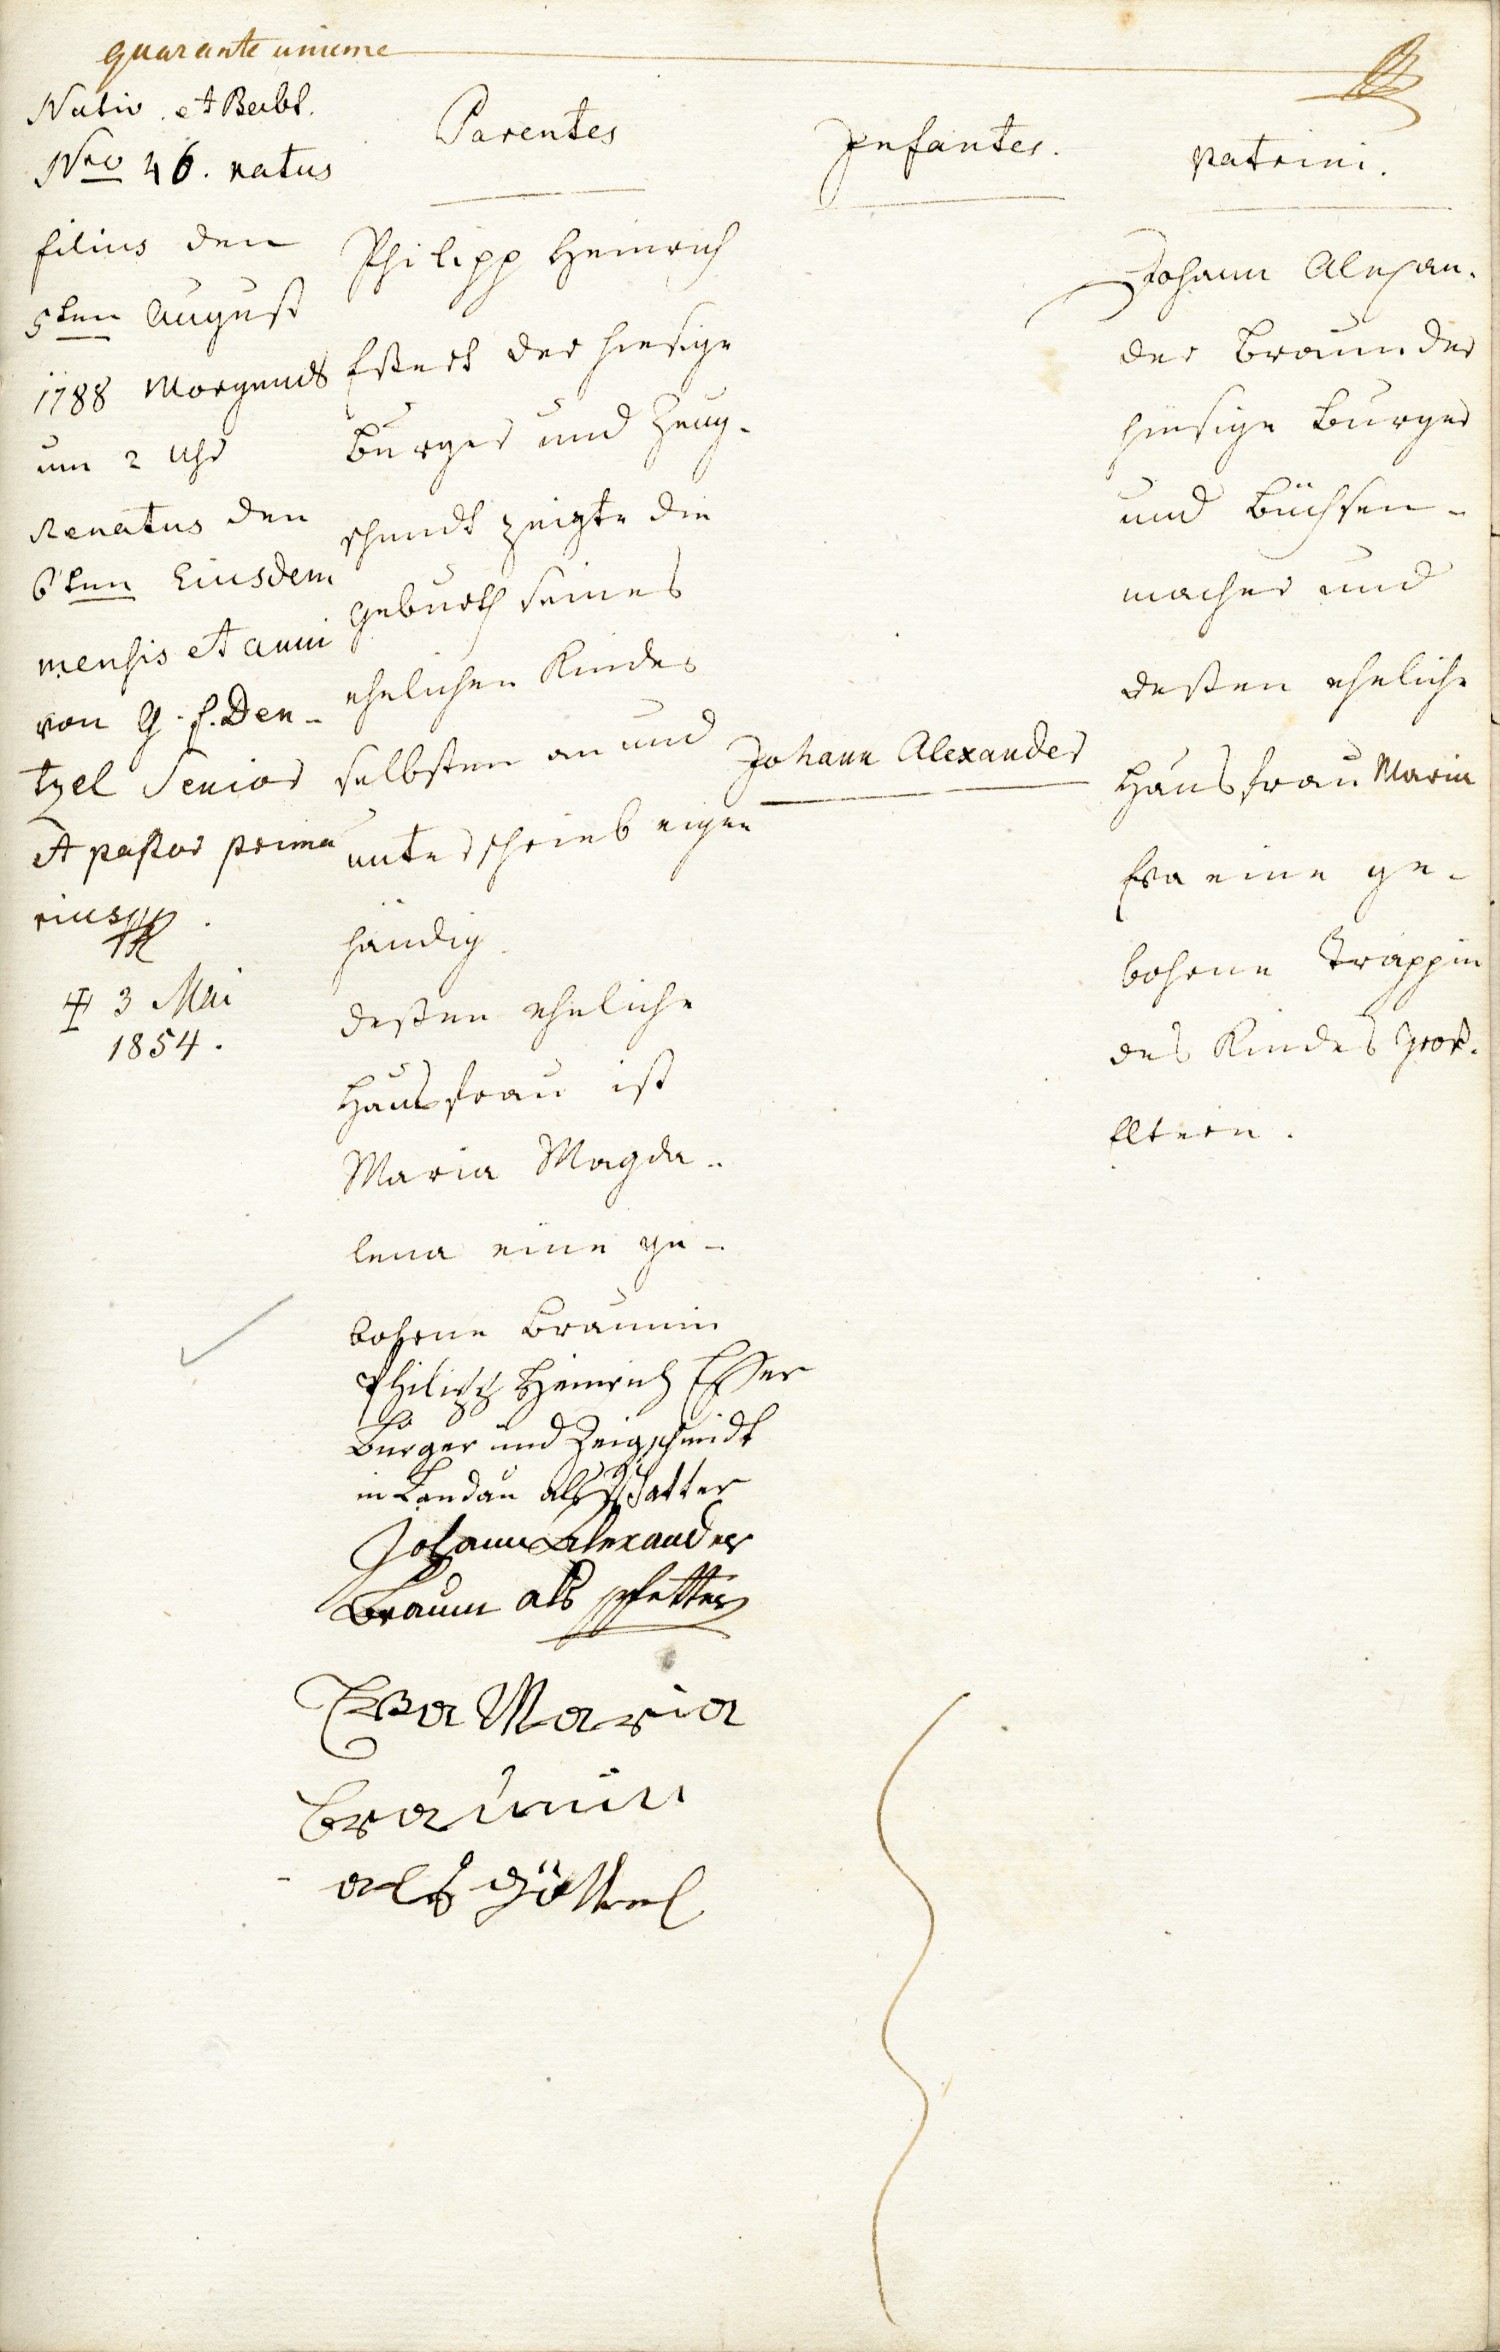 quarante unieme
Nativ. et Babt.
Nro 46. natus
filius den
5ten August
1788 Morgends
um 2 Uhr
Renatus den
6ten Eiusdem
mensis et anni
von G. f. Den-
tzel Senior
et pastor prima
rius
3 Mai
1854.
Parentes
Philipp Heinrich
Eßert der hiesige
Burger und Zeug-
schmidt zeigte die
Geburth seines
ehelichen Kindes
selbsten an und
unterschrieb eigen
händig.
deßen eheliche
Hausfrau ist
Maria Magda-
lena eine ge-
bohrne Braunin
Philipp Heinrich Esser
Burger und Zeigschmidt
in Landau alß Vatter
Johann Alexander
Braun als pfetter
Eva Maria
Braunin
alß Göttel
Infantes.
Johann Alexander
Patrini.
Johann Alexan-
der Braun der
hiesige Burger
und Büchsen-
macher und
deßen eheliche
Hausfrau Maria
Eva eine ge-
bohrne Trappin
des Kindes Groß-
Eltern.